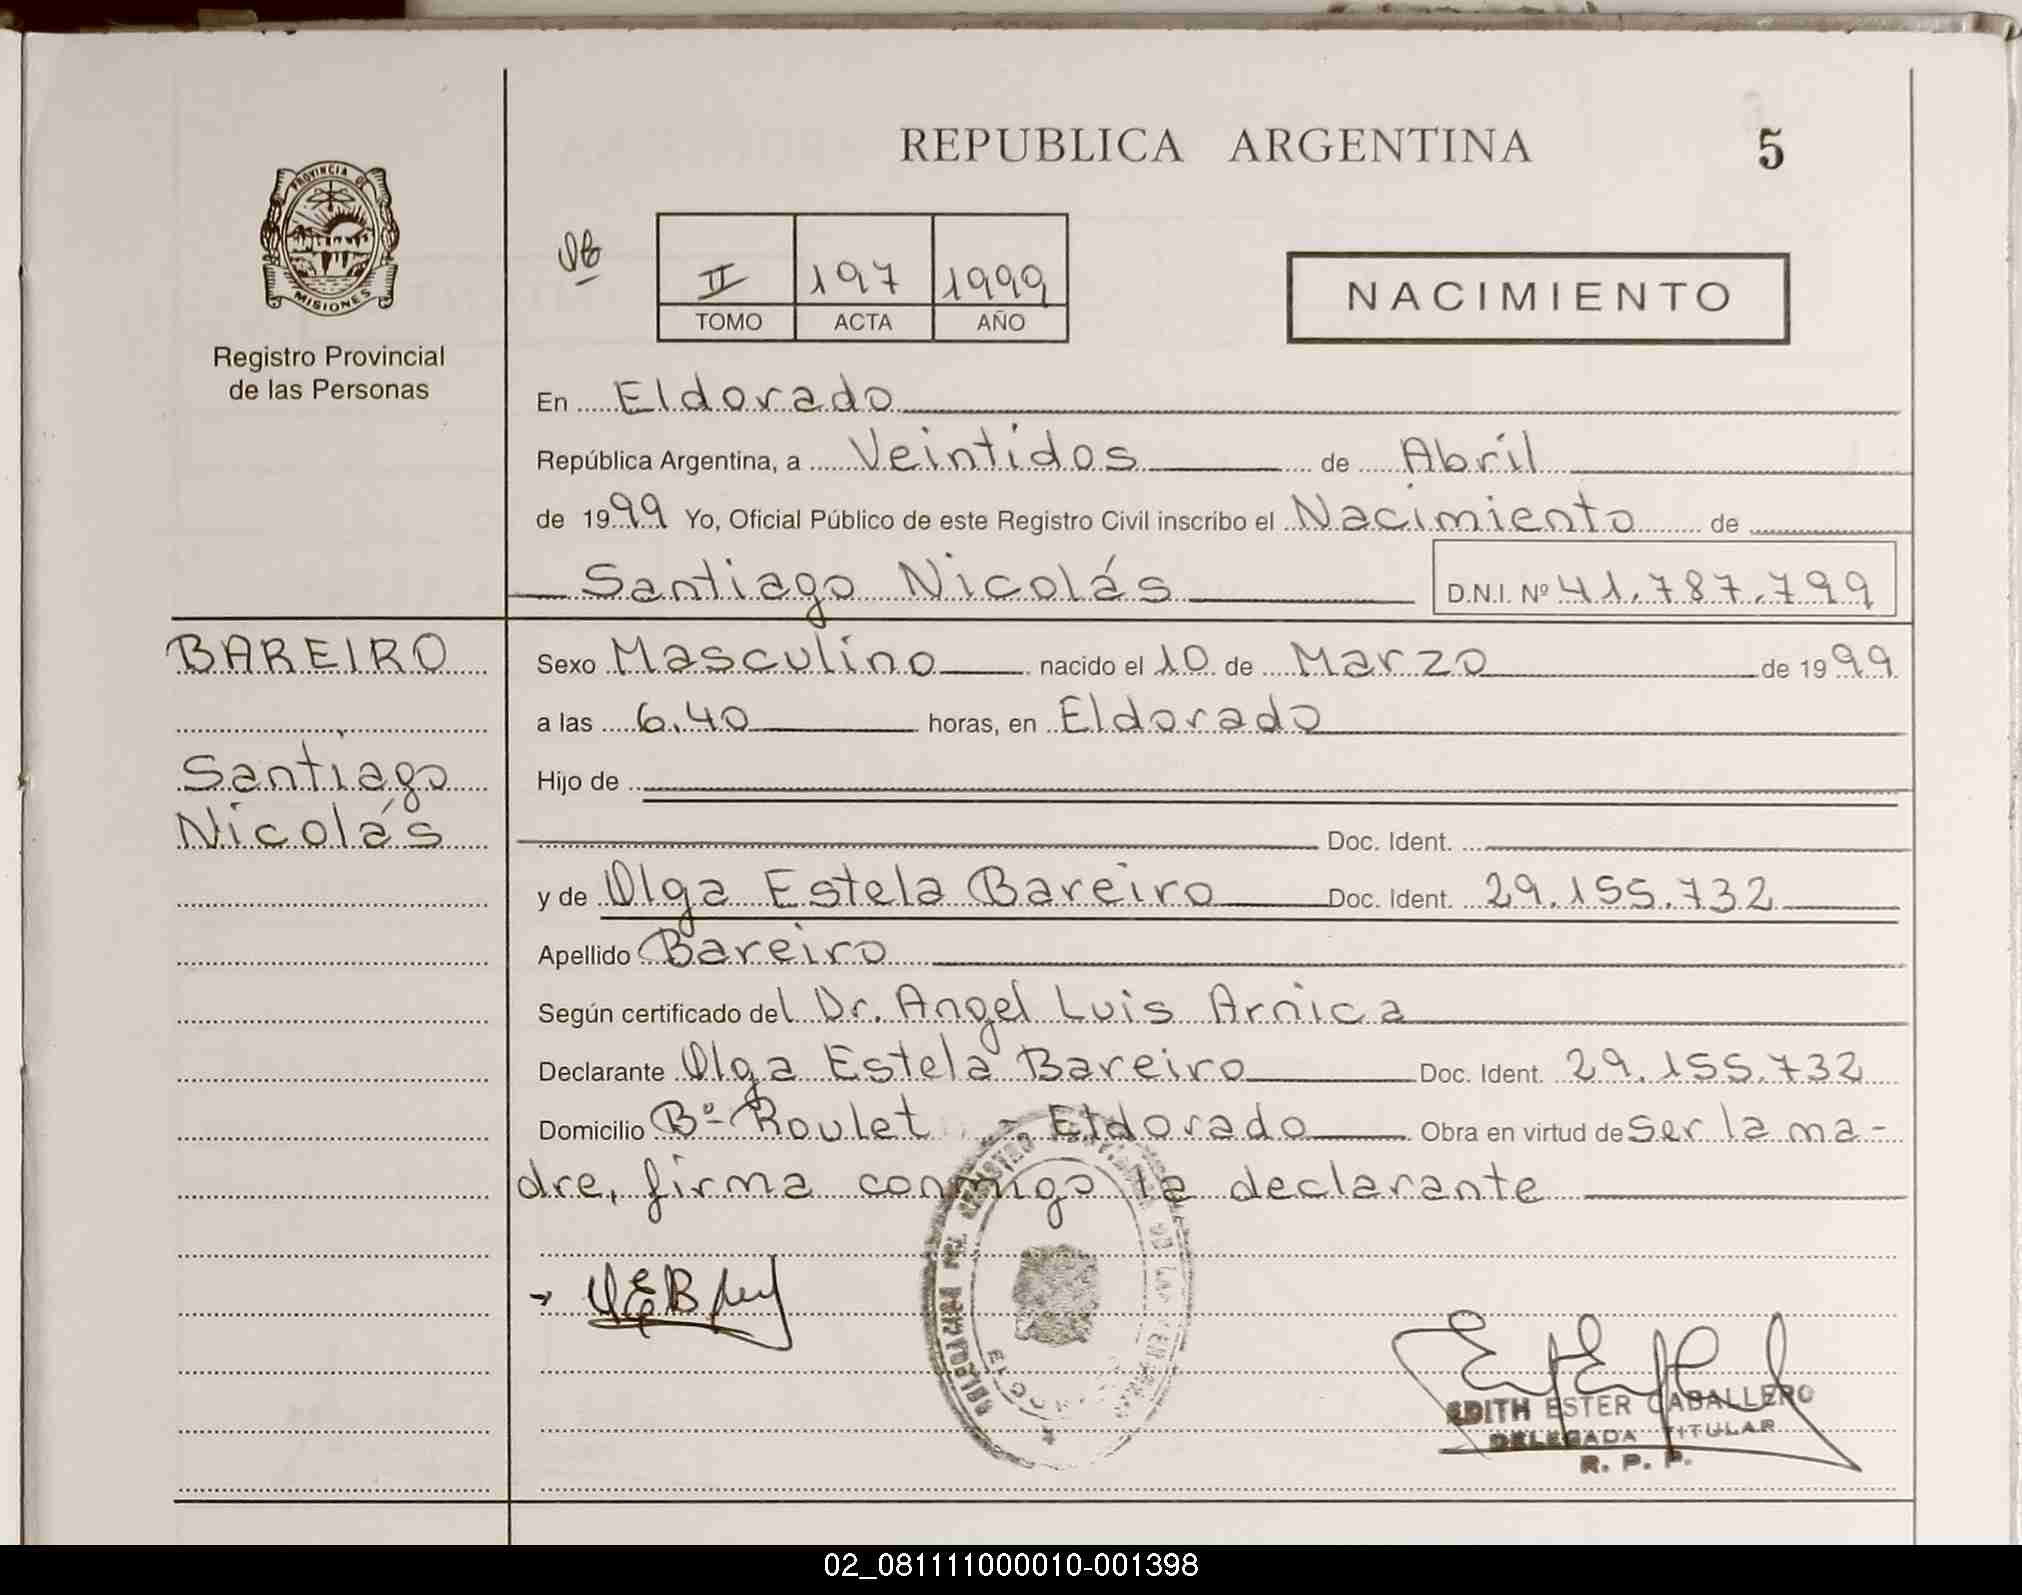 REPUBLICA ARGENTINA
5
PROVINCIA DE
MISIONES
Registro Provincial
de las Personas
II 197 1999
TOMO ACTA AÑO
NACIMIENTO
En Eldorado
República Argentina, a Veintidos de Abril
de 1999 Yo, Oficial Público de este Registro Civil inscribo el Nacimiento de
Santiago Nicolás D.N.I. Nº 41.787.799
BAREIRO
Santiago
Nicolás
Sexo Masculino nacido el 10 de Marzo de 1999
a las 6.40 horas, en Eldorado
Hijo de
Doc. Ident.
y de Olga Estela Bareiro Doc. Ident. 29.155.732
Apellido Bareiro
Según certificado del Dr. Angel Luis Arnica
Declarante Olga Estela Bareiro Doc. Ident. 29.155.732
Domicilio Bº Roulet - Eldorado Obra en virtud de ser la ma-
dre, firma conmigo la declarante
EDITH ESTER CABALLERO
DELEGADA TITULAR
R. P. P.
02_081111000010-001398